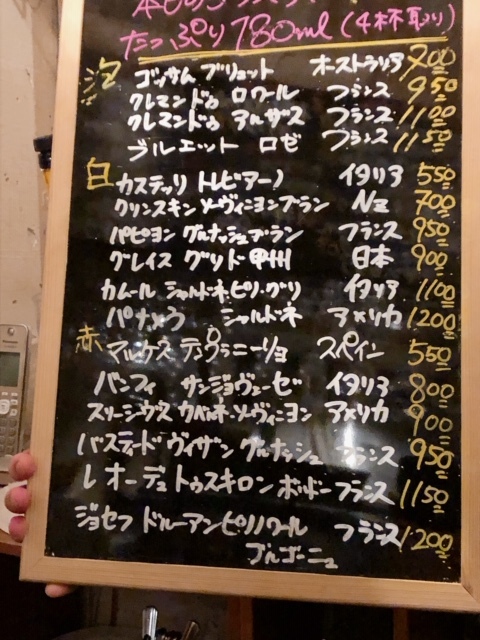 本日のグラスワイン
たっぷり180ml (4杯取り)
泡 ゴッサム ブリュット オーストラリア 700
クレマンドゥ ロワール フランス 950
クレマンドゥ アルザス フランス 1100
ブルエット ロゼ フランス 1150
白 カステッリ トレビアーノ イタリア 550
クリンスキン ソーヴィニヨンブラン NZ 700
パピヨン グルナッシュブラン フランス 950
グレイス グリド甲州 日本 900
カムール シャルドネ.ピノ.グリ イタリア 1100
パナメラ シャルドネ アメリカ 1200
赤 マルケス テンプラニーリョ スペイン 550
バンフィ サンジョヴェーゼ イタリア 800
スリーシヴズ カベルネ.ソーヴィニヨン アメリカ 900
バスティード ヴィザン グルナッシュ フランス 950
レオーデュ トゥスキロン ボルドー フランス 1150
ジョセフ ドルーアン ピノノワール フランス 1200
ブルゴーニュ
Panasonic